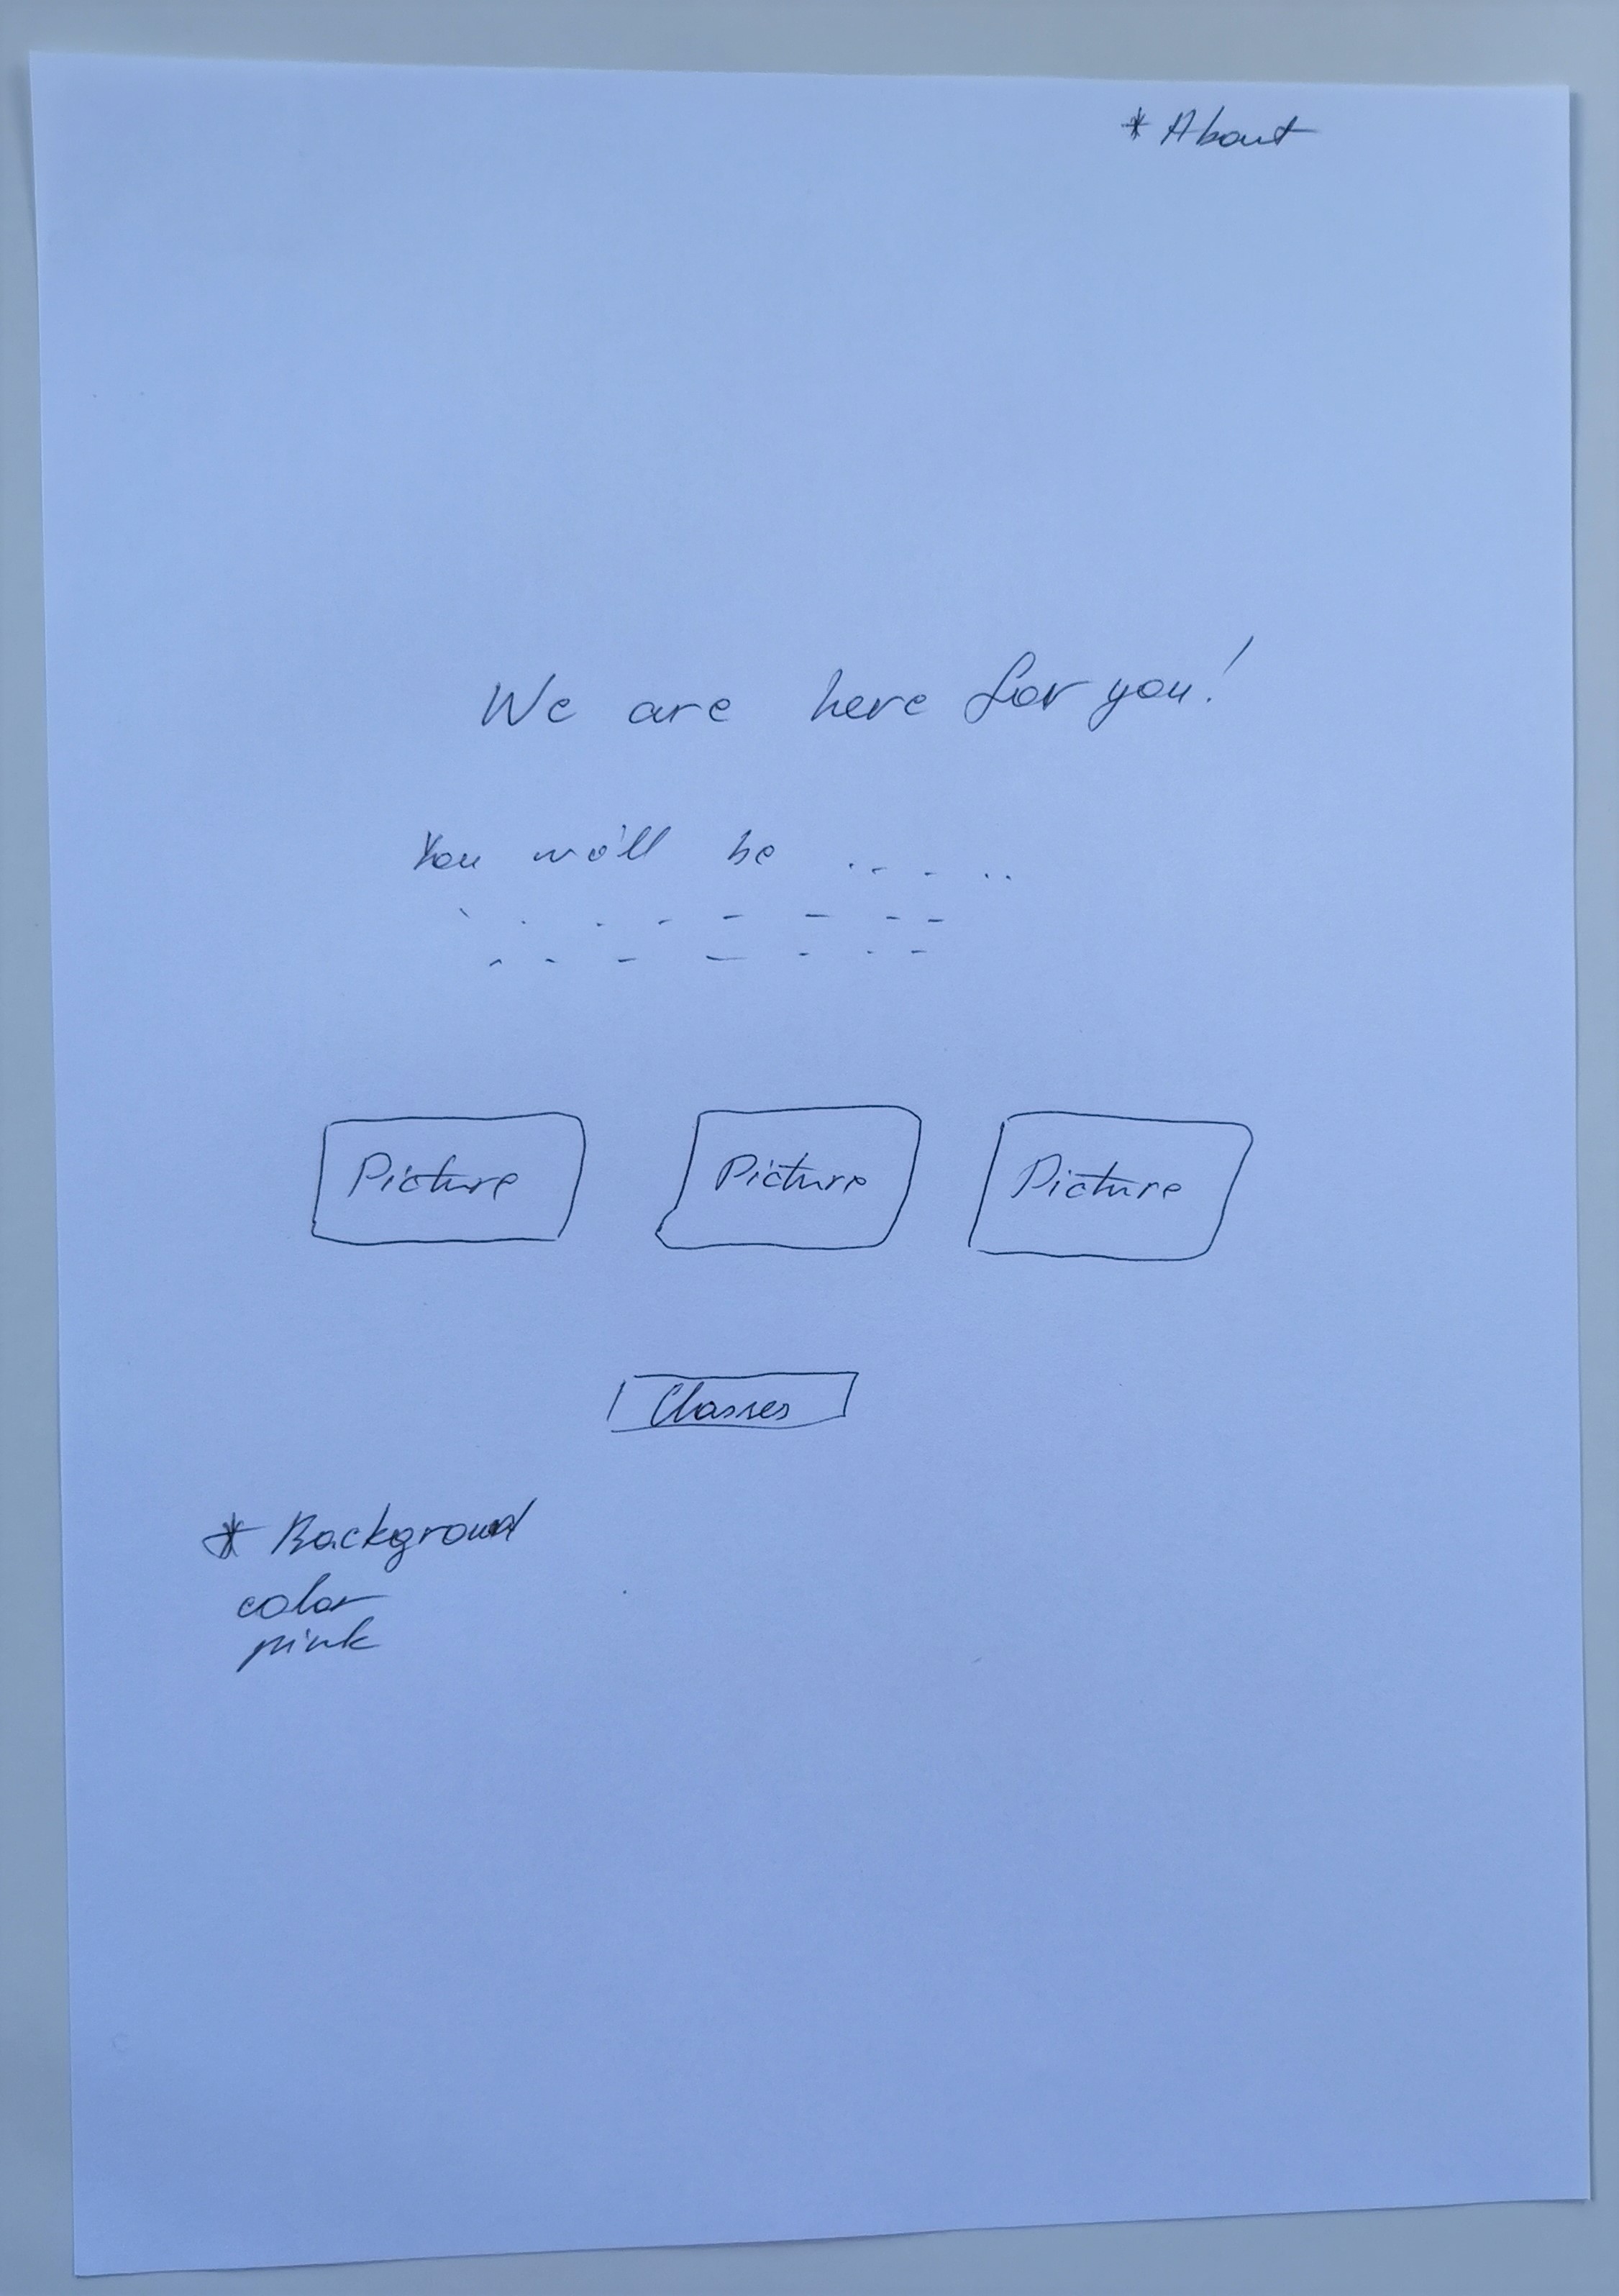 * About
We are here for you!
You will be . . - - . .
Picture Picture Picture
Classes
* Background
color
pink